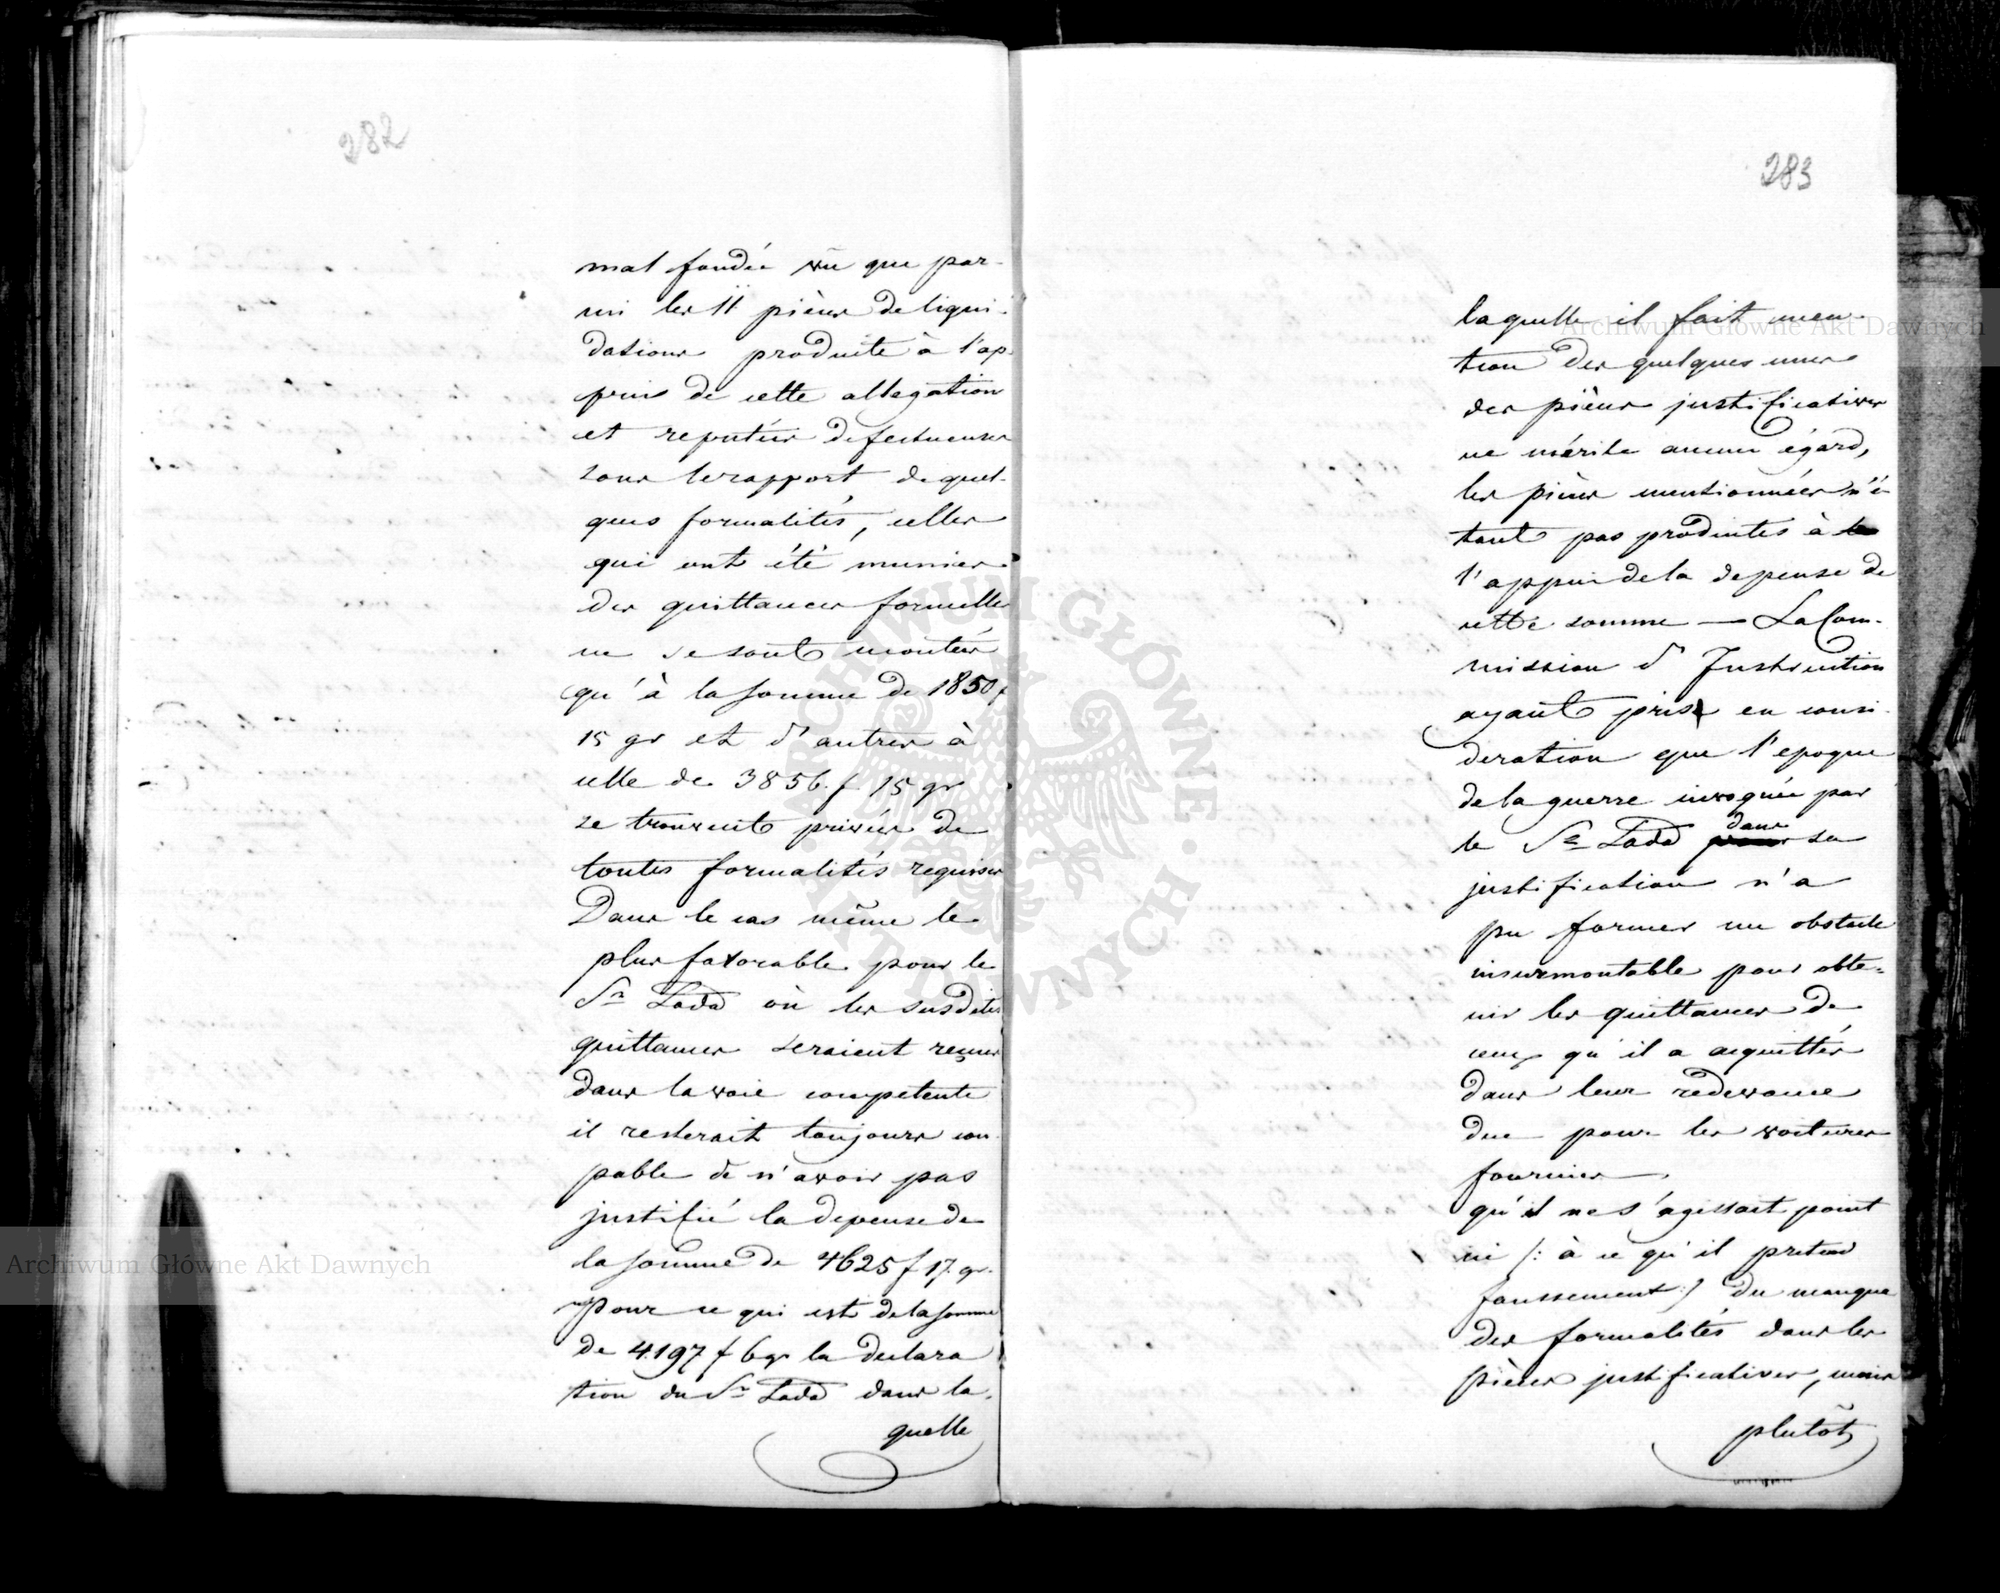 282
mal fondée vu que par-
mi les 11 pièces de liqui-
dations produite à l'ap-
puis de cette allegation
et reputées defectueuses
sous le rapport de quel-
ques formalités, celles
qui ont été munies
des quittances formelles
ne se sont montées
qu'à la somme de 1850 f
15 gr et d'autres à
celle de 3856. f 15 gr
se trouvent privées de
toutes formalités requises
Dans le cas même le
plus favorable pour le
Sr Lada où les susdites
quittances seraient reçues
dans la voie competente
il resterait toujours cou-
pable de n'avoir pas
justifié la depense de
la somme de 4625 f 17. gr.
Pour ce qui est de la somme
de 4197 f 6 gr la declara
tion du Sr Lada dans la-
quelle
283
laquelle il fait men-
tion des quelques unes
des pièces justificatives
ne mérite aucun égard,
les pièces mentionnées n'é-
tant pas produites à
l'appui de la depense de
cette somme — La Com-
mission d'Instruction
ayant pris en consi-
deration que l'epoque
de la guerre invoquée par
le Sr Lada dans sa
justification n'a
pu former un obstacle
insurmontable pour obte-
nir les quittances de
ceux qu'il a acquittés
dans leur redevance
due pour les voitures
fournies —.
qu'il ne s'agissait point
ici /: à ce qu'il pretend
faussement :/ du manque
des formalités dans les
pièces justificatives, mais
plutôt
Archiwum Główne Akt Dawnych
Archiwum Główne Akt Dawnych
ARCHIWUM GŁÓWNE · AKT DAWNYCH ·